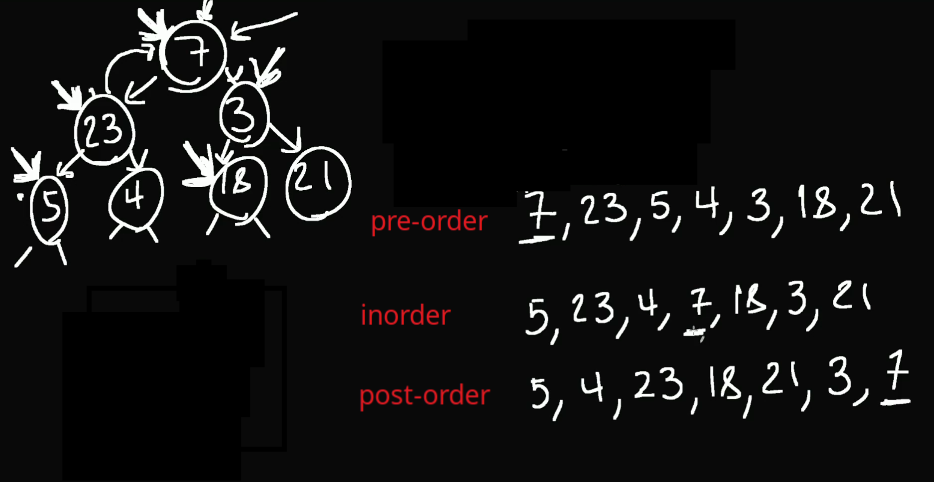 7
23 3
5 4 18 21
pre-order 7, 23, 5, 4, 3, 18, 21
inorder 5, 23, 4, 7, 18, 3, 21
post-order 5, 4, 23, 18, 21, 3, 7